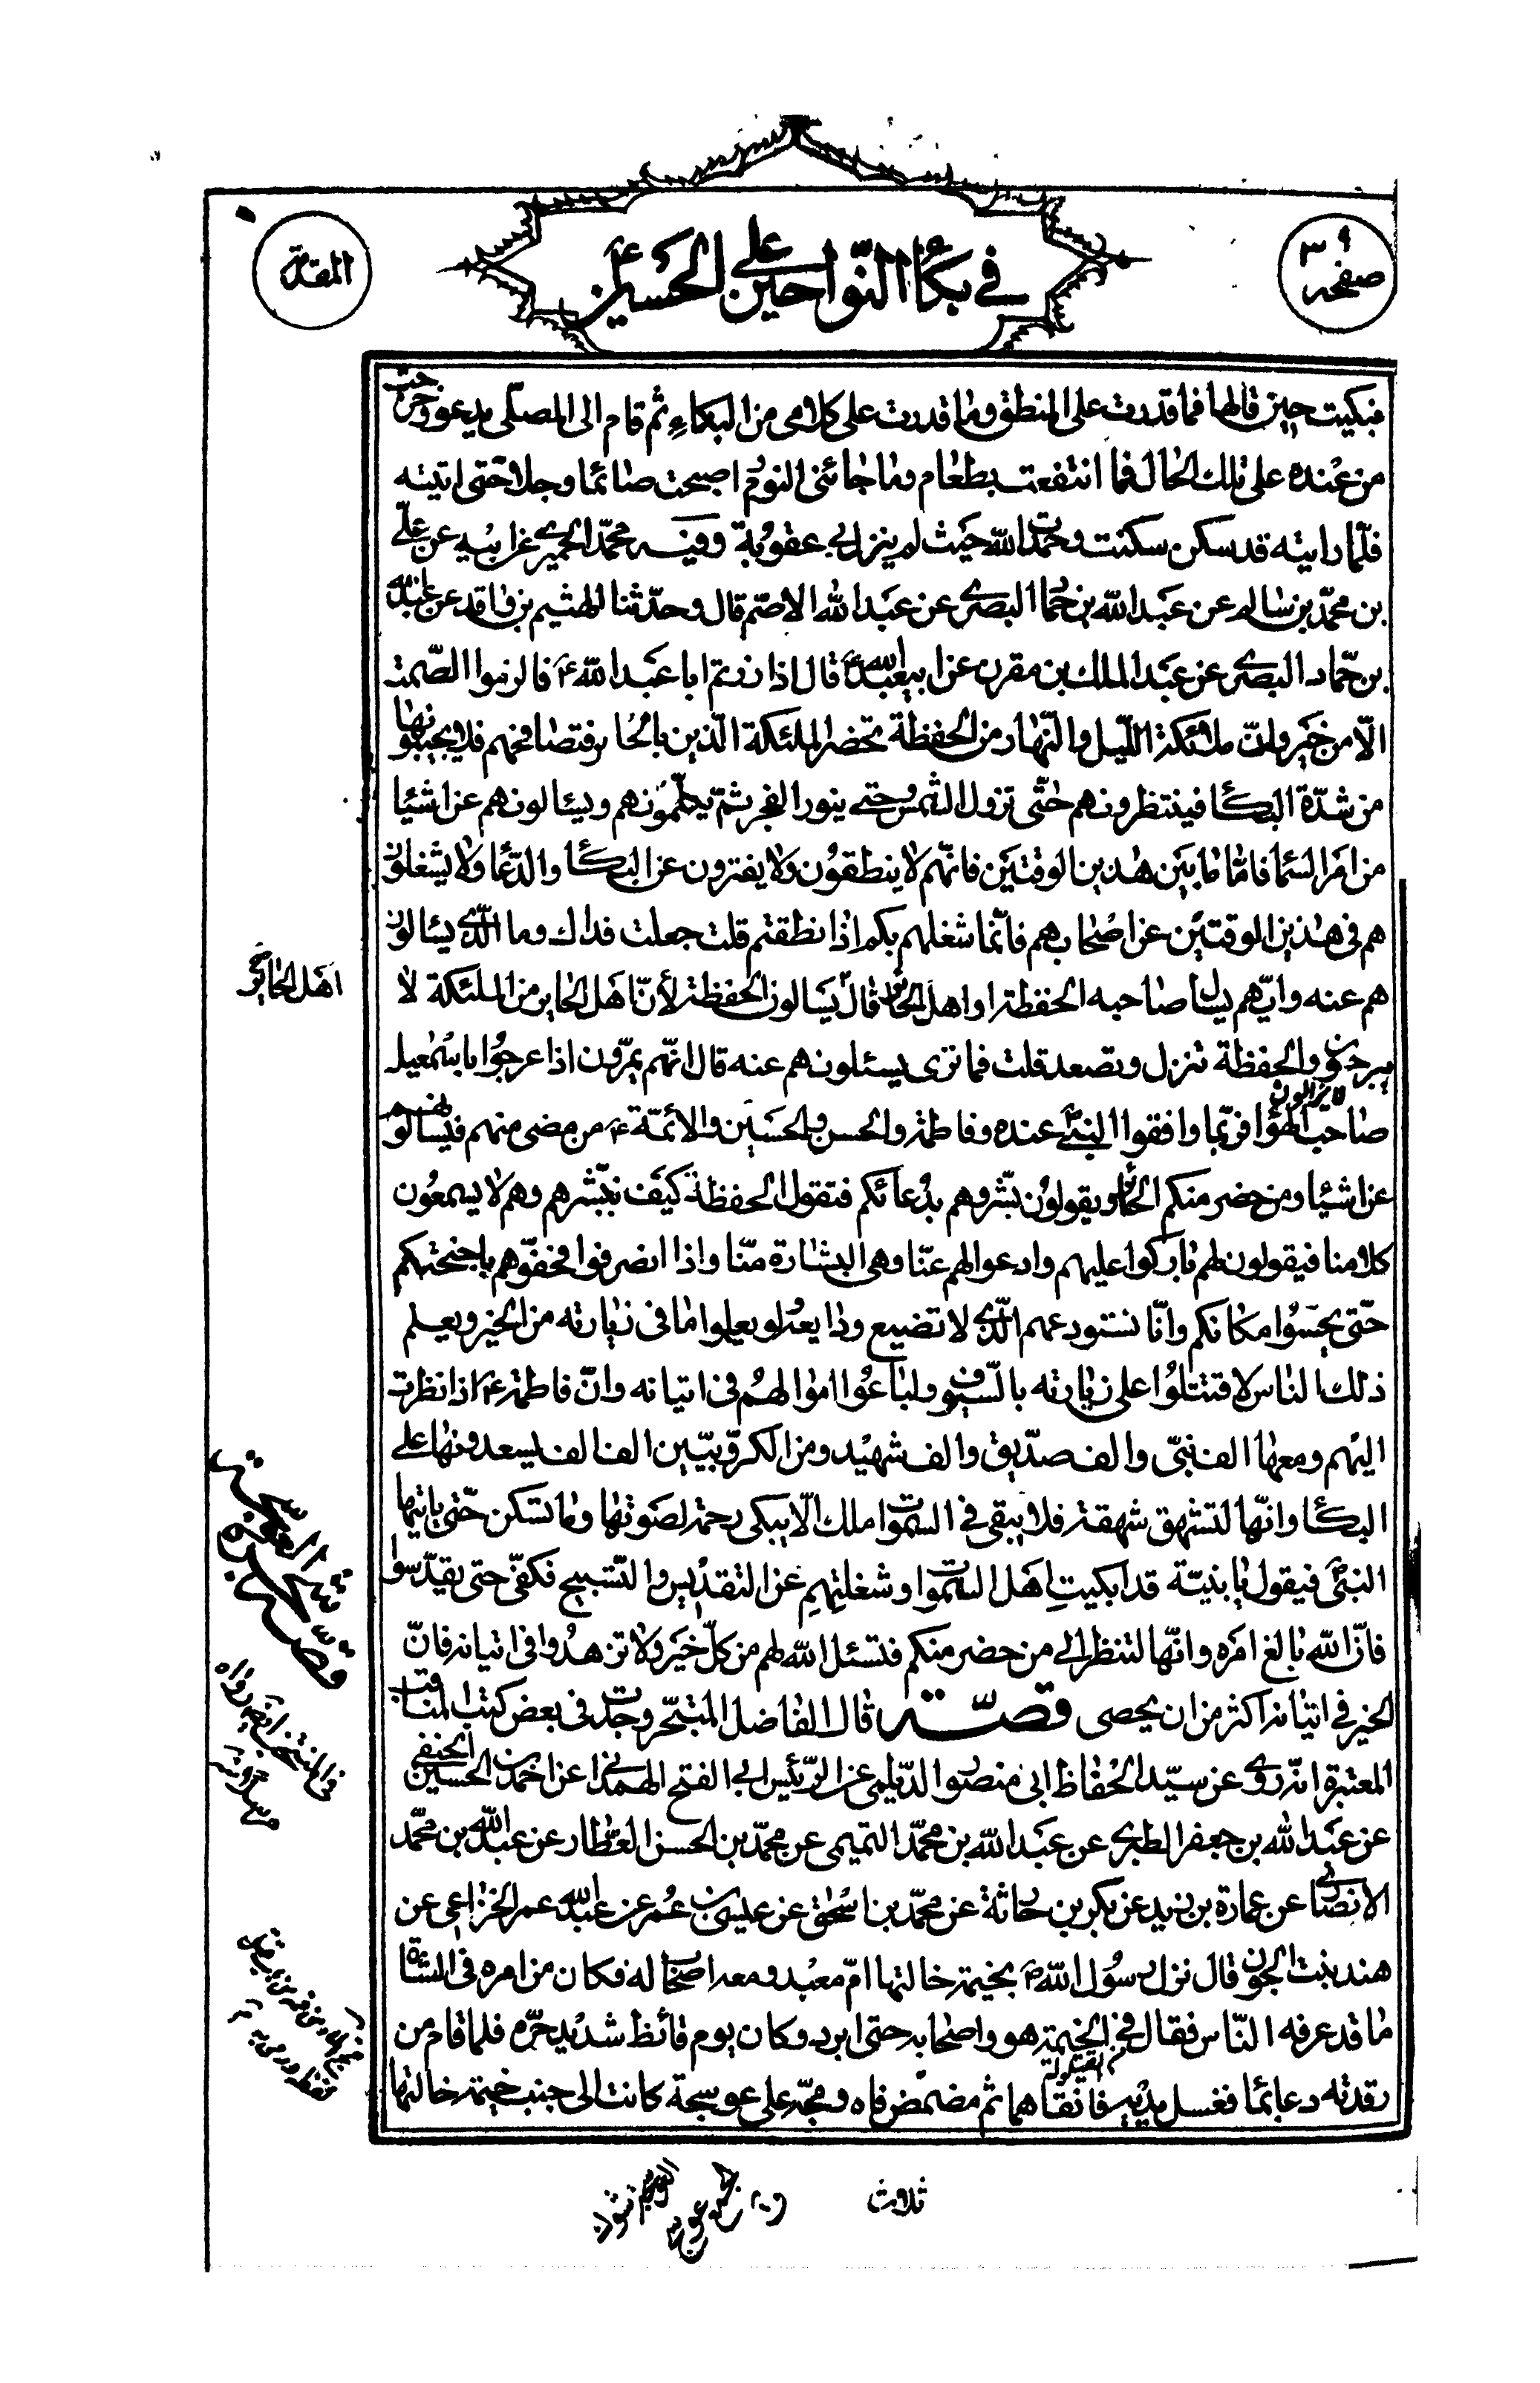 صفحه ٣٩
في بكاء النواحين على الحسين ع
المقدمة
فبكيت حين قالها فما قدرت على المنطق وما قدرت على كلامى من البكاء ثم قام الى المصلّى يدعو وخرجت
من عنده على تلك الحال فما انتفعت بطعام وما جائنى النوم اصبحت صائما وجلا حتى اتيته
فلمّا رايته قد سكن سكنت وحمدت الله حيث لم ينزل بي عقوبة وفيه محمّد الحميرى عن ابيه عن علي
بن محمّد بن سالم عن عبد الله بن حماد البصرى عن عبد الله الاصمّ قال وحدّثنا الهيثم بن واقد عن عبد الله
بن حمّاد البصرى عن عبد الملك بن مقرن عن ابيعبد الله ع قال اذا زرتم ابا عبد الله ع فالزموا الصّمت
الّا من خير وانّ ملائكة اللّيل والنّهار من الحفظة تحضر الملئكة الّذين بالحاير فتصافحهم فلا يجيبونها
من شدّة البكاء فينتظرونهم حتّى تزول الشمس وحتى ينور الفجر ثمّ يكلّمونهم ويسئالونهم عن اشياء
من امر السّماء فامّا ما بين هذين الوقتين فانّهم لا ينطقون ولا يفترون عن البكاء والدّعا ولا يشغلون
هم فى هذين الوقتين عن اصحابهم فانّما شغلهم بكم اذا نطقتم قلت جعلت فداك وما الّذى يسئالون
هم عنه وايّهم يسئل صاحبه الحفظة او اهل الحائر قال يسالون الحفظة لأنّ اهل الحاير من الملئكة لا
يبرحون والحفظة تنزل وتصعد قلت فما ترى يسئلونهم عنه قال انّهم يمرّون اذا عرجوا باسمعيل
لا يزالون
صاحب الهواء فربّما وافقوا النبيّ ص عنده وفاطمة والحسن والحسين والأئمّة ع من مضى منهم فيسالونهم
عن اشياء ومن حضر منكم الحائر ويقولون بشّروهم بدعائكم فتقول الحفظة كيف نبشّرهم وهم لا يسمعون
كلامنا فيقولون لهم باركوا عليهم وادعوا لهم عنّا وهى البشارة منّا واذا انصرفوا فحفّوهم باجنحتكم
حتّى يحسّوا مكانكم وانّا نستودعهم الّذى لا تضيع ودايعه ولو يعلموا ما فى زيارته من الخير ويعلم
ذلك الناس لاقتتلوا على زيارته بالسّيوف ولباعوا اموالهم فى اتيانه وانّ فاطمة ع اذا نظرت
اليهم ومعها الف نبىّ والف صدّيق والف شهيد ومن الكرّوبيّين الف الف يسعدونها على
البكاء وانّها لتشهق شهقة فلا يبقى فى السّموات ملك الّا يبكى رحمة لصوتها وما تسكن حتّى ياتيها
النبىّ ص فيقول يا بنيّة قد ابكيت اهل السّموات وشغلتهم عن التقديس والتّسبيح فكفّى حتى يقدّسوا
فانّ الله بالغ امره وانّها لتنظر الى من حضر منكم فتسئل الله لهم من كلّ خير ولا تزهدوا فى اتيانه فانّ
الخير فى اتيانه اكثر من ان يحصى قصّة قال الفاضل المتبحّر وجدت فى بعض كتب المناقب
المعتبرة انّه روى عن سيّد الحفاظ ابى منصور الدّيلمى عن الرّئيس ابى الفتح الهمدانى عن احمد بن الحسين الحنفى
عن عبد الله بن جعفر الطبرى عن عبد الله بن محمّد التميمى عن محمّد بن الحسن العطّار عن عبد الله بن محمّد
الانصارى عن عمارة بن زيد عن بكر بن حارثة عن محمّد بن اسحق عن عيسى بن عمر عن عبد الله عمر الخزاعى عن
هند بنت الجون قال نزل رسول الله ص بخيمة خالتها امّ معبد ومعه اصحاب له فكان من امره فى الشاة
ما قد عرفه النّاس فقال فى الخيمة هو واصحابه حتى ابرد وكان يوم قائظ شديد حرّه فلما قام من
من القيلولة
رقدته دعا بماء فغسل يديه فانقاهما ثم مضمض فاه ومجّه على عوسجة كانت الى جنب خيمة خالتها
اهل الحاير
قصّة
ثلاث